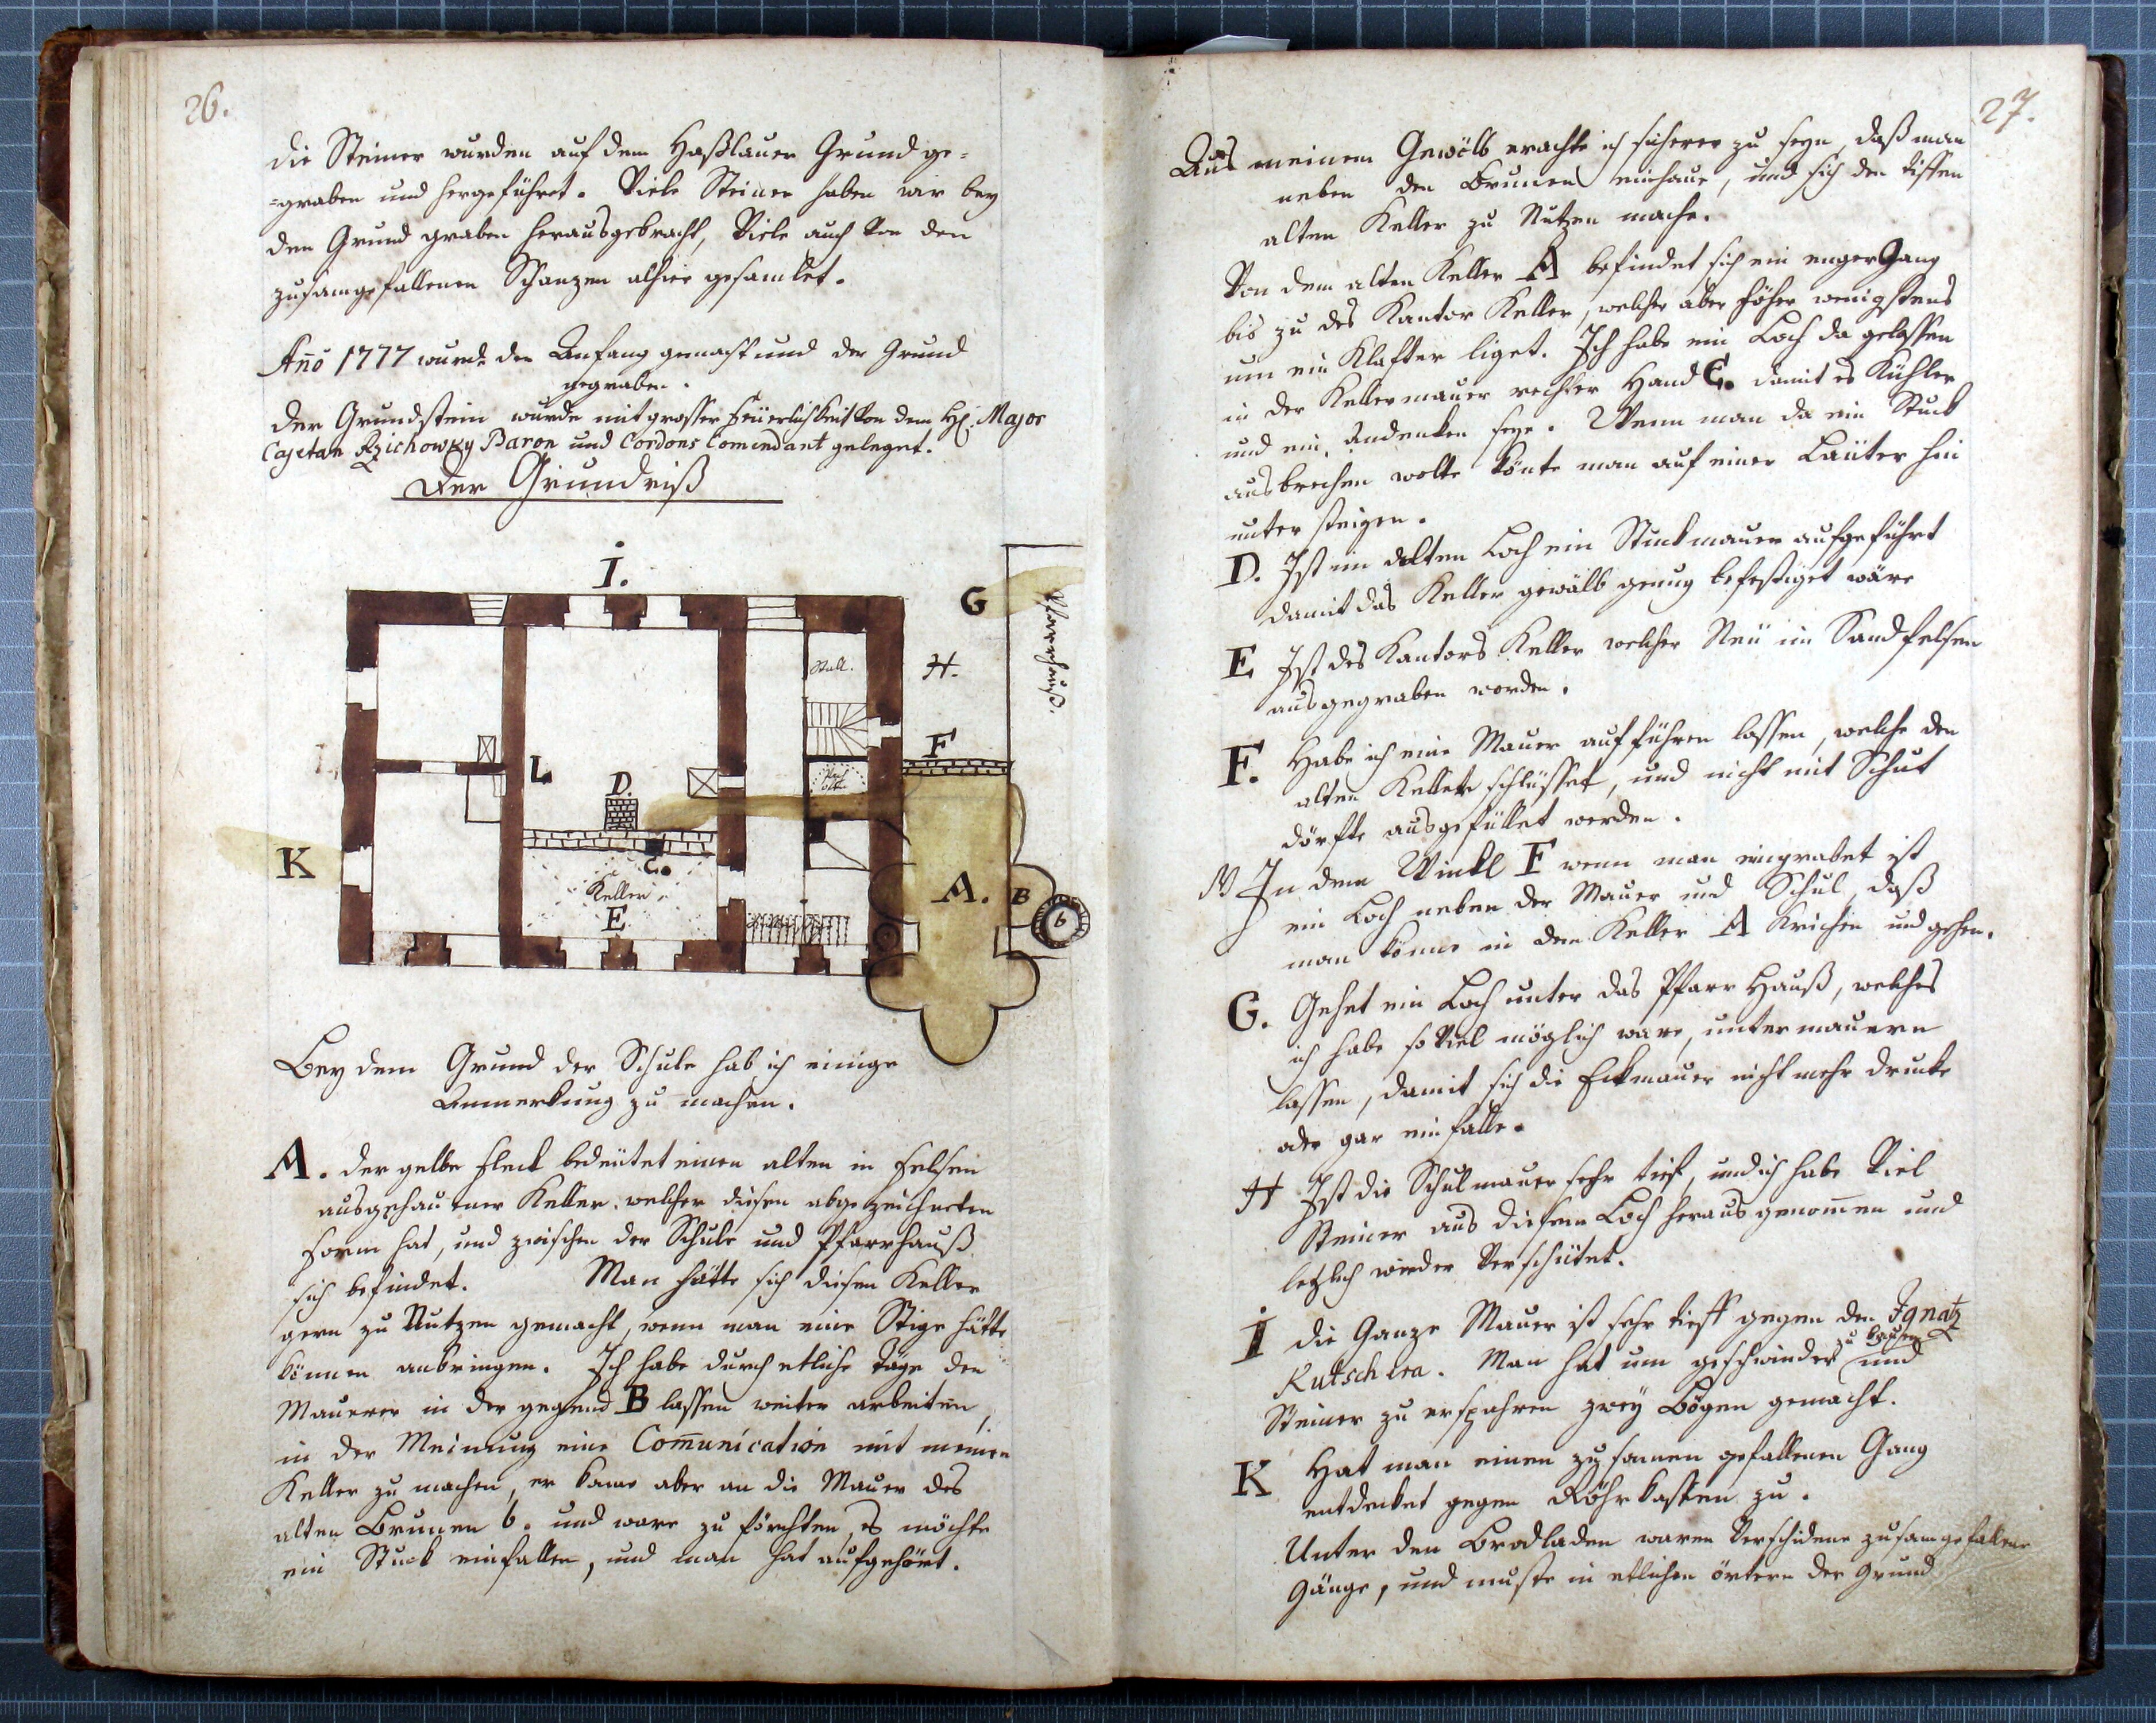 26.
die Steiner wurden auf dem Haßlauer Grund ge-
-graben und hergeführet. Viele Steiner haben wir bey
den Grund graben herausgebracht, Viele auch von den
zusamgefallenen Schanzen alhier gesamlet.
Añо 1777 wurde der Anfang gemacht und der Grund
gegraben.
Der Grundstein wurde mit grosser Feüerlichkeit von dem H. Major
Cajetan Baron und Cordons Comendant geleget.
Der Grundriß
I.
G
Pfarrhauß.
Stall.
H.
F
L
D.
K
C.
A.
B
Keller
E
6
Bey dem Grund der Schule hab ich einige
Anmerkung zu machen.
A. der gelbe Fleck bedeütet einen alten in Felsen
ausgehauener Keller, welcher diesen abgezeichneten
Form hat, und zwischen der Schule und Pfarrhauß
sich befindet. Man hätte sich diesen Keller
gern zu Nutzen gemacht, wenn man eine Stige hätte
können anbringen. Ich habe durch etliche Täge den
Maurer in der gegend B lassen weiter arbeiten,
in der Meinung eine Com̄unication mit meinen
Keller zu machen, er kame aber an die Mauer des
alten Brunen 6. und ware zu förchten, es möchte
ein Stuck einfallen, und man hat aufgehört.
27.
Aus meinem Gewölb erachte ich sicherer zu seyn, daß man
neben den Brunen einhaue, und sich den tiffen
alten Keller zu Nutzen mache.
Von dem alten Keller A befindet sich ein enger Gang
bis zu des Kantor Keller, welcher aber höher wenigstens
um ein Klafter liget. Ich habe ein Loch da gelassen
in der Kellermauer rechter Hand C. damit es Kühler
und ein Andenken seye. Wenn man da ein Stuck
ausbrechen wolte könte man auf einer Laüter hin
unter steigen.
D. Ist im alten Loch ein Stuckmauer aufgeführt
damit das Keller gewälb genug befestiget wäre
E Ist des Kantors Keller welcher Neü im Sandfelsen
ausgegraben worden.
F. Habe ich eine Mauer aufführen lassen, welche den
alten Keller schlüsset, und nicht mit Schut
dörfte ausgefüllet werden.
In dem Winkl F wenn man eingrabet ist
ein Loch neben der Mauer und Schul, daß
man könne in dem Keller A Krichen und gehen.
G. Gehet ein Loch unter das Pfarr Hauß, welches
ich habe so Viel möglich ware, untermauern
lassen, damit sich die Eckmauer nicht mehr drucke
oder gar einfalle.
H Ist die Schulmauer sehr tief, und ich habe Viel
Steiner aus diesem Loch herausgenom̄en und
letzlich wieder Verschütet.
I die Ganze Mauer ist sehr tieff gegen den Ignatz
Kutschera. Man hat um geschwinder zu bauen und
Steiner zu erspahren zwey Bögen gemacht.
K Hat man einen zusamen gefallenen Gang
entdecket gegen Röhrkasten zu.
Unter den Brodladen waren Verschidene zusamgefallene
Gänge, und muste in etlichen örtern der Grund